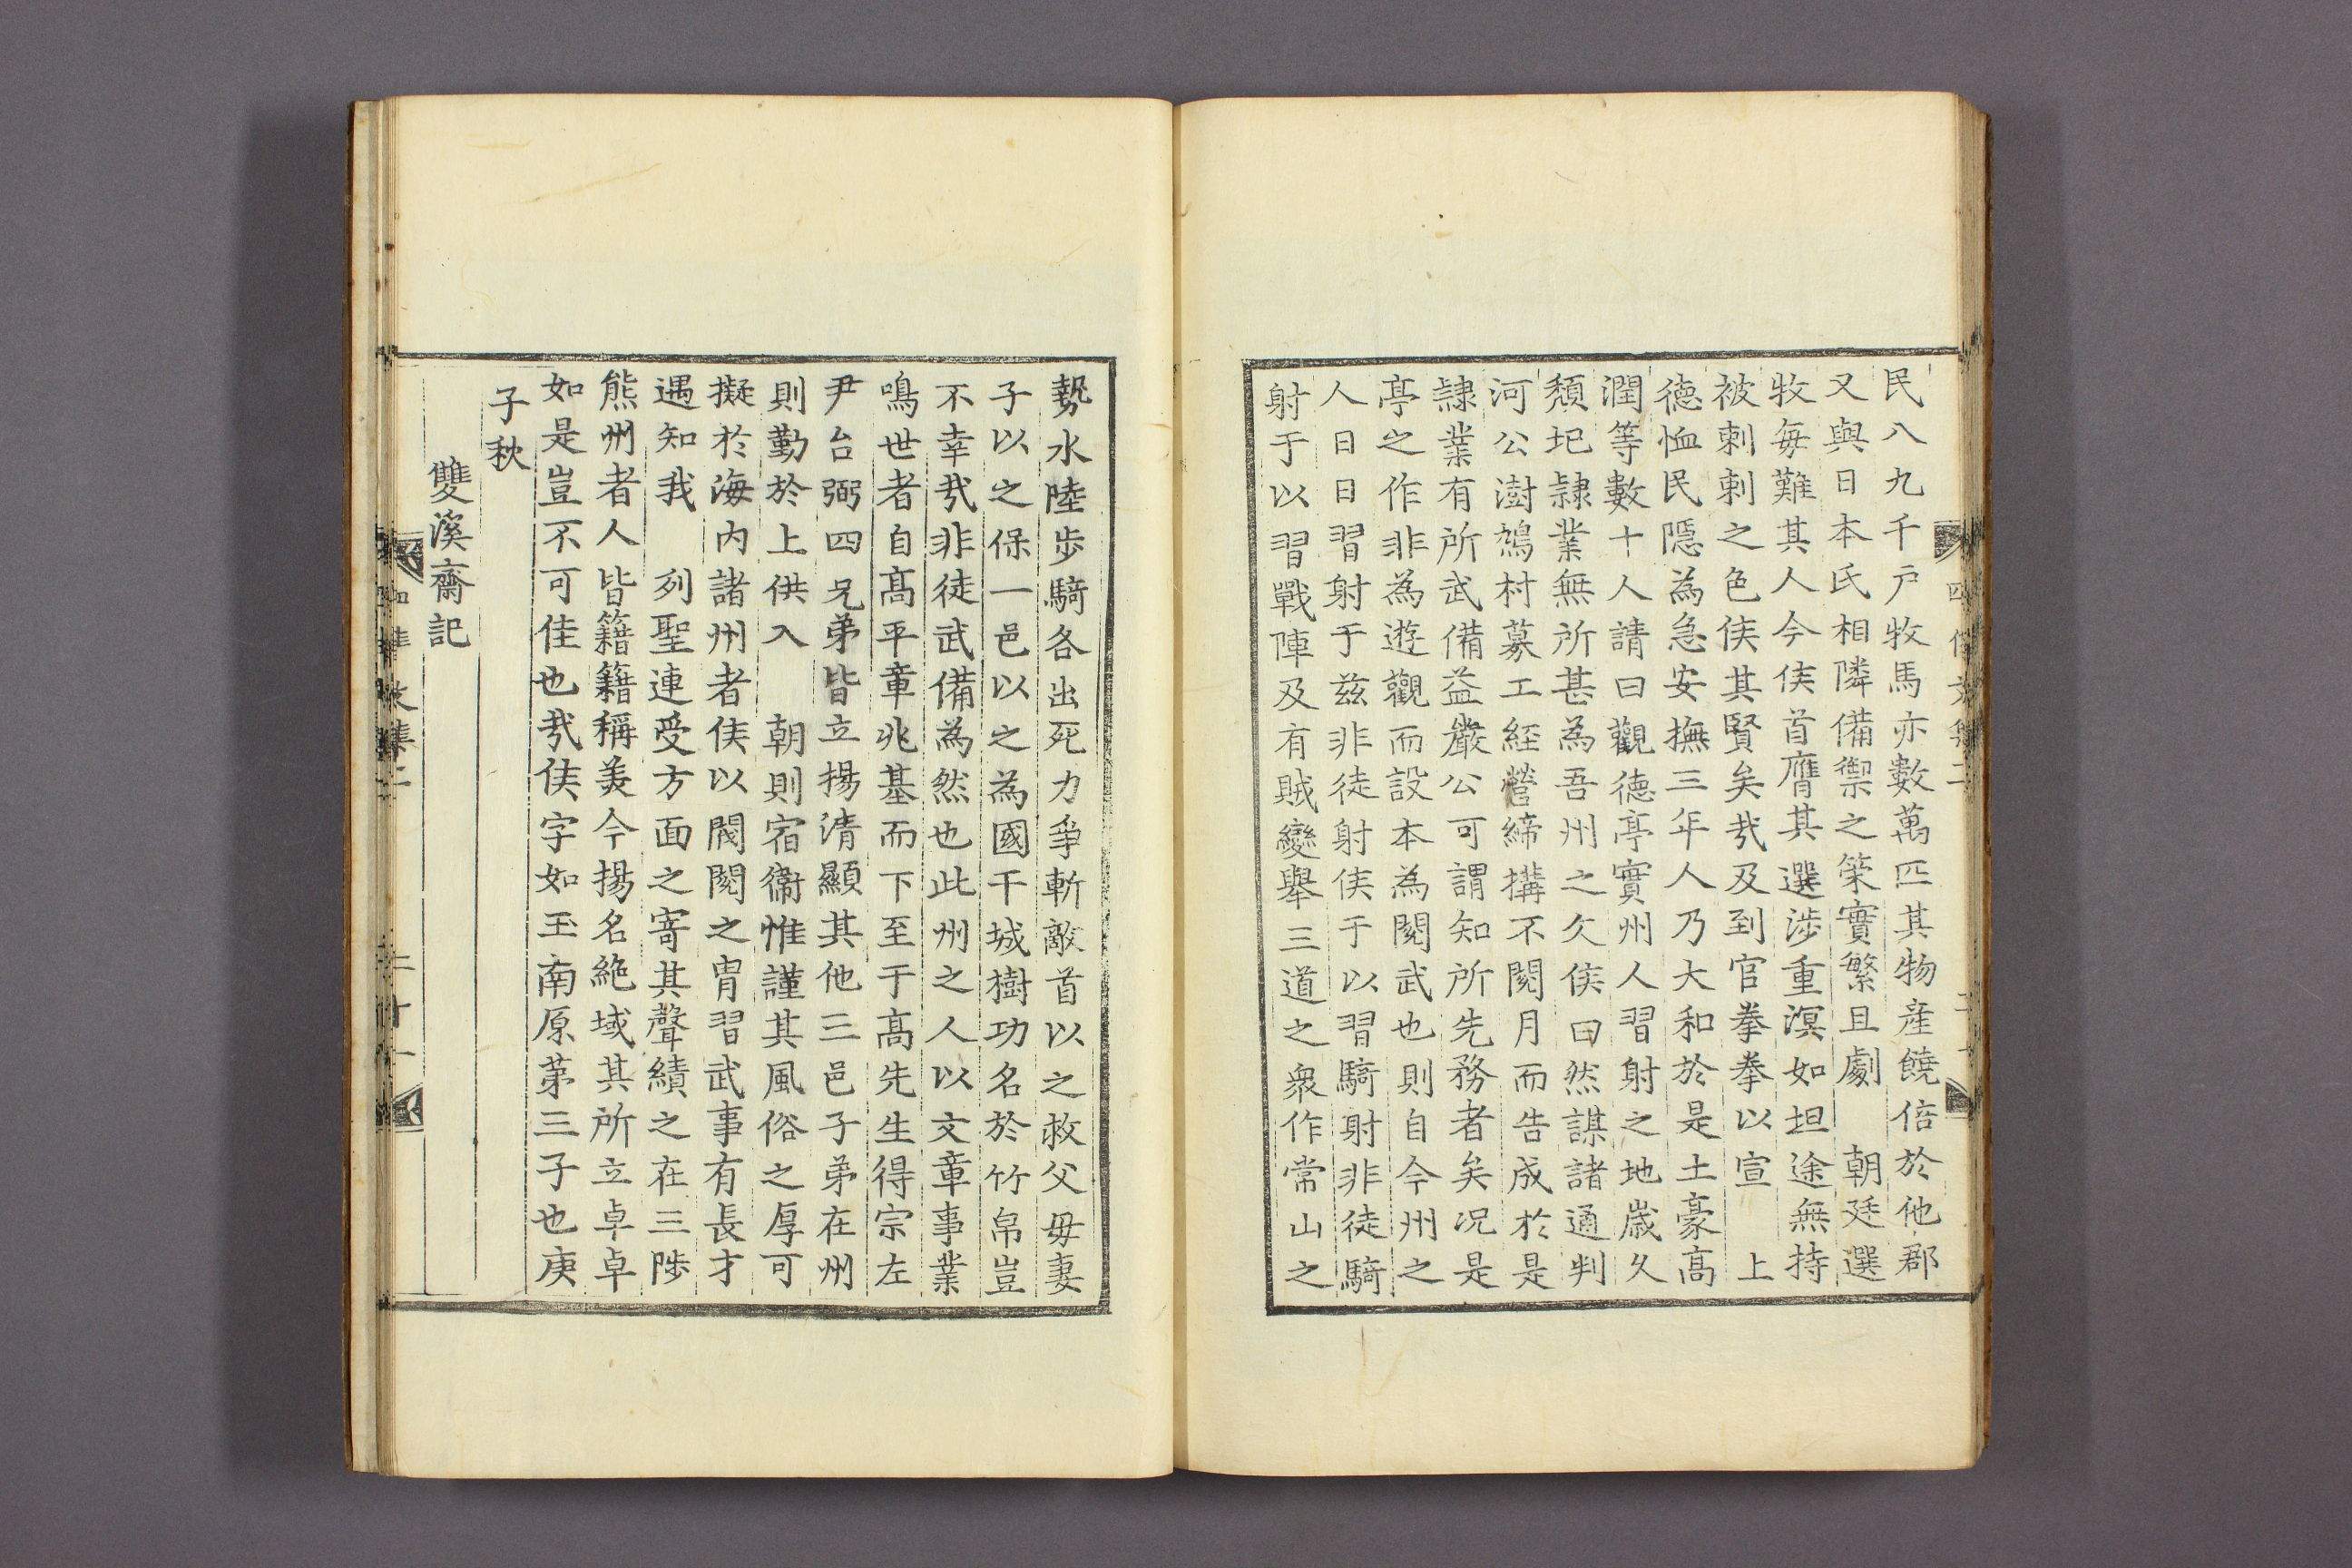 民八九千戶牧馬亦數萬匹其物産饒倍於他郡
又與日本氏相隣備禦之策實繁且劇 朝廷選
牧每難其人今侯首膺其選渉重溟如坦途無持
被剌剌之色侯其賢矣㢤及到官拳拳以宣 上
德恤民隱為急安撫三年人乃大和於是土豪高
潤等數十人請曰觀德亭實州人習射之地歲久
頹圮隷業無所甚為吾州之欠侯曰然謀諸通判
河公澍鵂村募工經營締搆不閱月而告成於是
隷業有所武備益嚴公可謂知所先務者矣况是
亭之作非為遊觀而設本為閱武也則自今州之
人日日習射于兹非徒射侯于以習騎射非徒騎
射于以習戰陣及有賊變舉三道之衆作常山之
勢水陸步騎各出死力爭斬敵首以之救父毋妻
子以之保一邑以之為國干城樹功名於竹帛豈
不幸㢤非徒武備為然也此州之人以文章事業
鳴世者自高平章兆基而下至于高先生得宗左
尹台弼四兄弟皆立揚清顯其他三邑子弟在州
則勤於上供入 朝則宿衛惟謹其風俗之厚可
擬於海内諸州者侯以閥閱之胄習武事有長才
遇知我 列聖連受方面之寄其聲績之在三陟
熊州者人皆籍籍稱美今揚名絶域其所立卓卓
如是豈不可佳也㢤侯字如玉南原第三子也庚
子秋
雙溪齋記
文集二
二十一